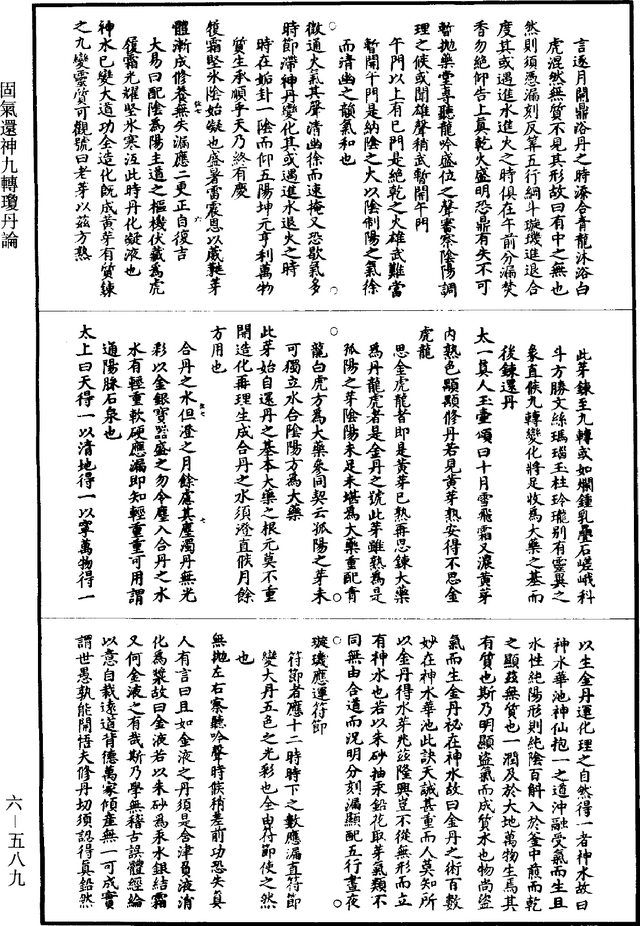 言逐月開鼎浴丹之時添合青龍沐浴白
虎混然無質不見其形故曰有中之無也
然則須憑漏刻反算五行綱斗璇璣進退合
度其或遇進水進火之時俱在午前分漏焚
香勿絕仰告上真乾火盛明恐鼎有失不可
暫拋藥堂專聽龍吟盛位之聲審察陰陽調
理之候或聞雄聲稍武暫開午門
午門以上有巳門是絕乾之火雄武難當
暫開午門是納陰之火以陰制陽之氣徐
而清幽之韻氣和也
微通火氣其聲清幽徐而速掩又恐歇氣多
時節滯神丹變化其或遇進水退火之時
時在姤卦一陰而仰五陽坤元亨利萬物
質生承順乎天乃終有慶
復霜堅氷陰始凝也盛暑雷震思以葳蕤芽
體漸成修養無失漏應二更正自復吉
大易曰配陰為陽主道之樞機伏藏為虎
復霜光耀堅氷寒沍此時丹化凝液也
神水已變大道功全造化既成黃芽有質鍊
之九變靈質可觀號曰老芽以茲方熟
此芽鍊至九轉或如爛鍾乳疊石嵯峨科
斗方勝文絲瑪瑙玉柱玲瓏別有靈異之
象直候九轉變化將足收為大藥之基而
後鍊還丹
太一真人玉壷頌曰十月雪飛霜又濃黃芽
內熟色顯顯修丹若見黃芽熟安得不思金
虎龍
思金虎龍者即是黃芽巳熟再思鍊大藥
為丹龍虎者是金丹之號此芽雖熟為是
孤陽之芽陰陽未足未堪為大藥重配青
龍白虎方為大藥參同契云孤陽之芽未
可獨立水合陰陽方為大藥
此芽始自還丹之基本大藥之根元莫不重
開造化再理生成合丹之水須澄直候月餘
方用也
合丹之水但澄之月餘慮其塵濁丹無光
彩以金銀寶器盛之勿令塵入合丹之水
水有輕重軟硬應漏即知輕重重可用謂
通陽脉石泉也
太上曰天得一以清地得一以寧萬物得一
以生金丹運化理之自然得一者神水故曰
神水華池神仙抱一之道沖融受氣而生且
水性純陽形則純陰百斛入於釜中煎而乾
之顯茲無質也一潤及於大地萬物生焉其
有質也斯乃明顯盜氣而成質水也物尚盜
氣而生金丹祕在神水故曰金丹之術百數
妙在神水華池此訣天誡甚重而人莫知所
以金丹得水芽兆茲隆興豈不從無形而立
有神水也若以朱砂抽汞鉛花取芽氣類不
同無由合道而況明分刻漏顯配五行晝夜
璇璣應運符節
符節者應十二時時下之數應漏直符節
變大丹五色之光彩也全由符節使之然
也
無拋左右察聽吟聲時候稍差前功恐失真
人有言曰且如金液之丹須是含津員液消
化為漿故曰金液若以朱砂為汞水銀結霜
又何金液之有哉斯乃學無稽古誤體經綸
以意自裁遠道背德萬家傾產無一可成實
謂世愚孰能開悟夫修丹切須認得真鉛然
固氣還神九轉瓊丹論
六－五八九